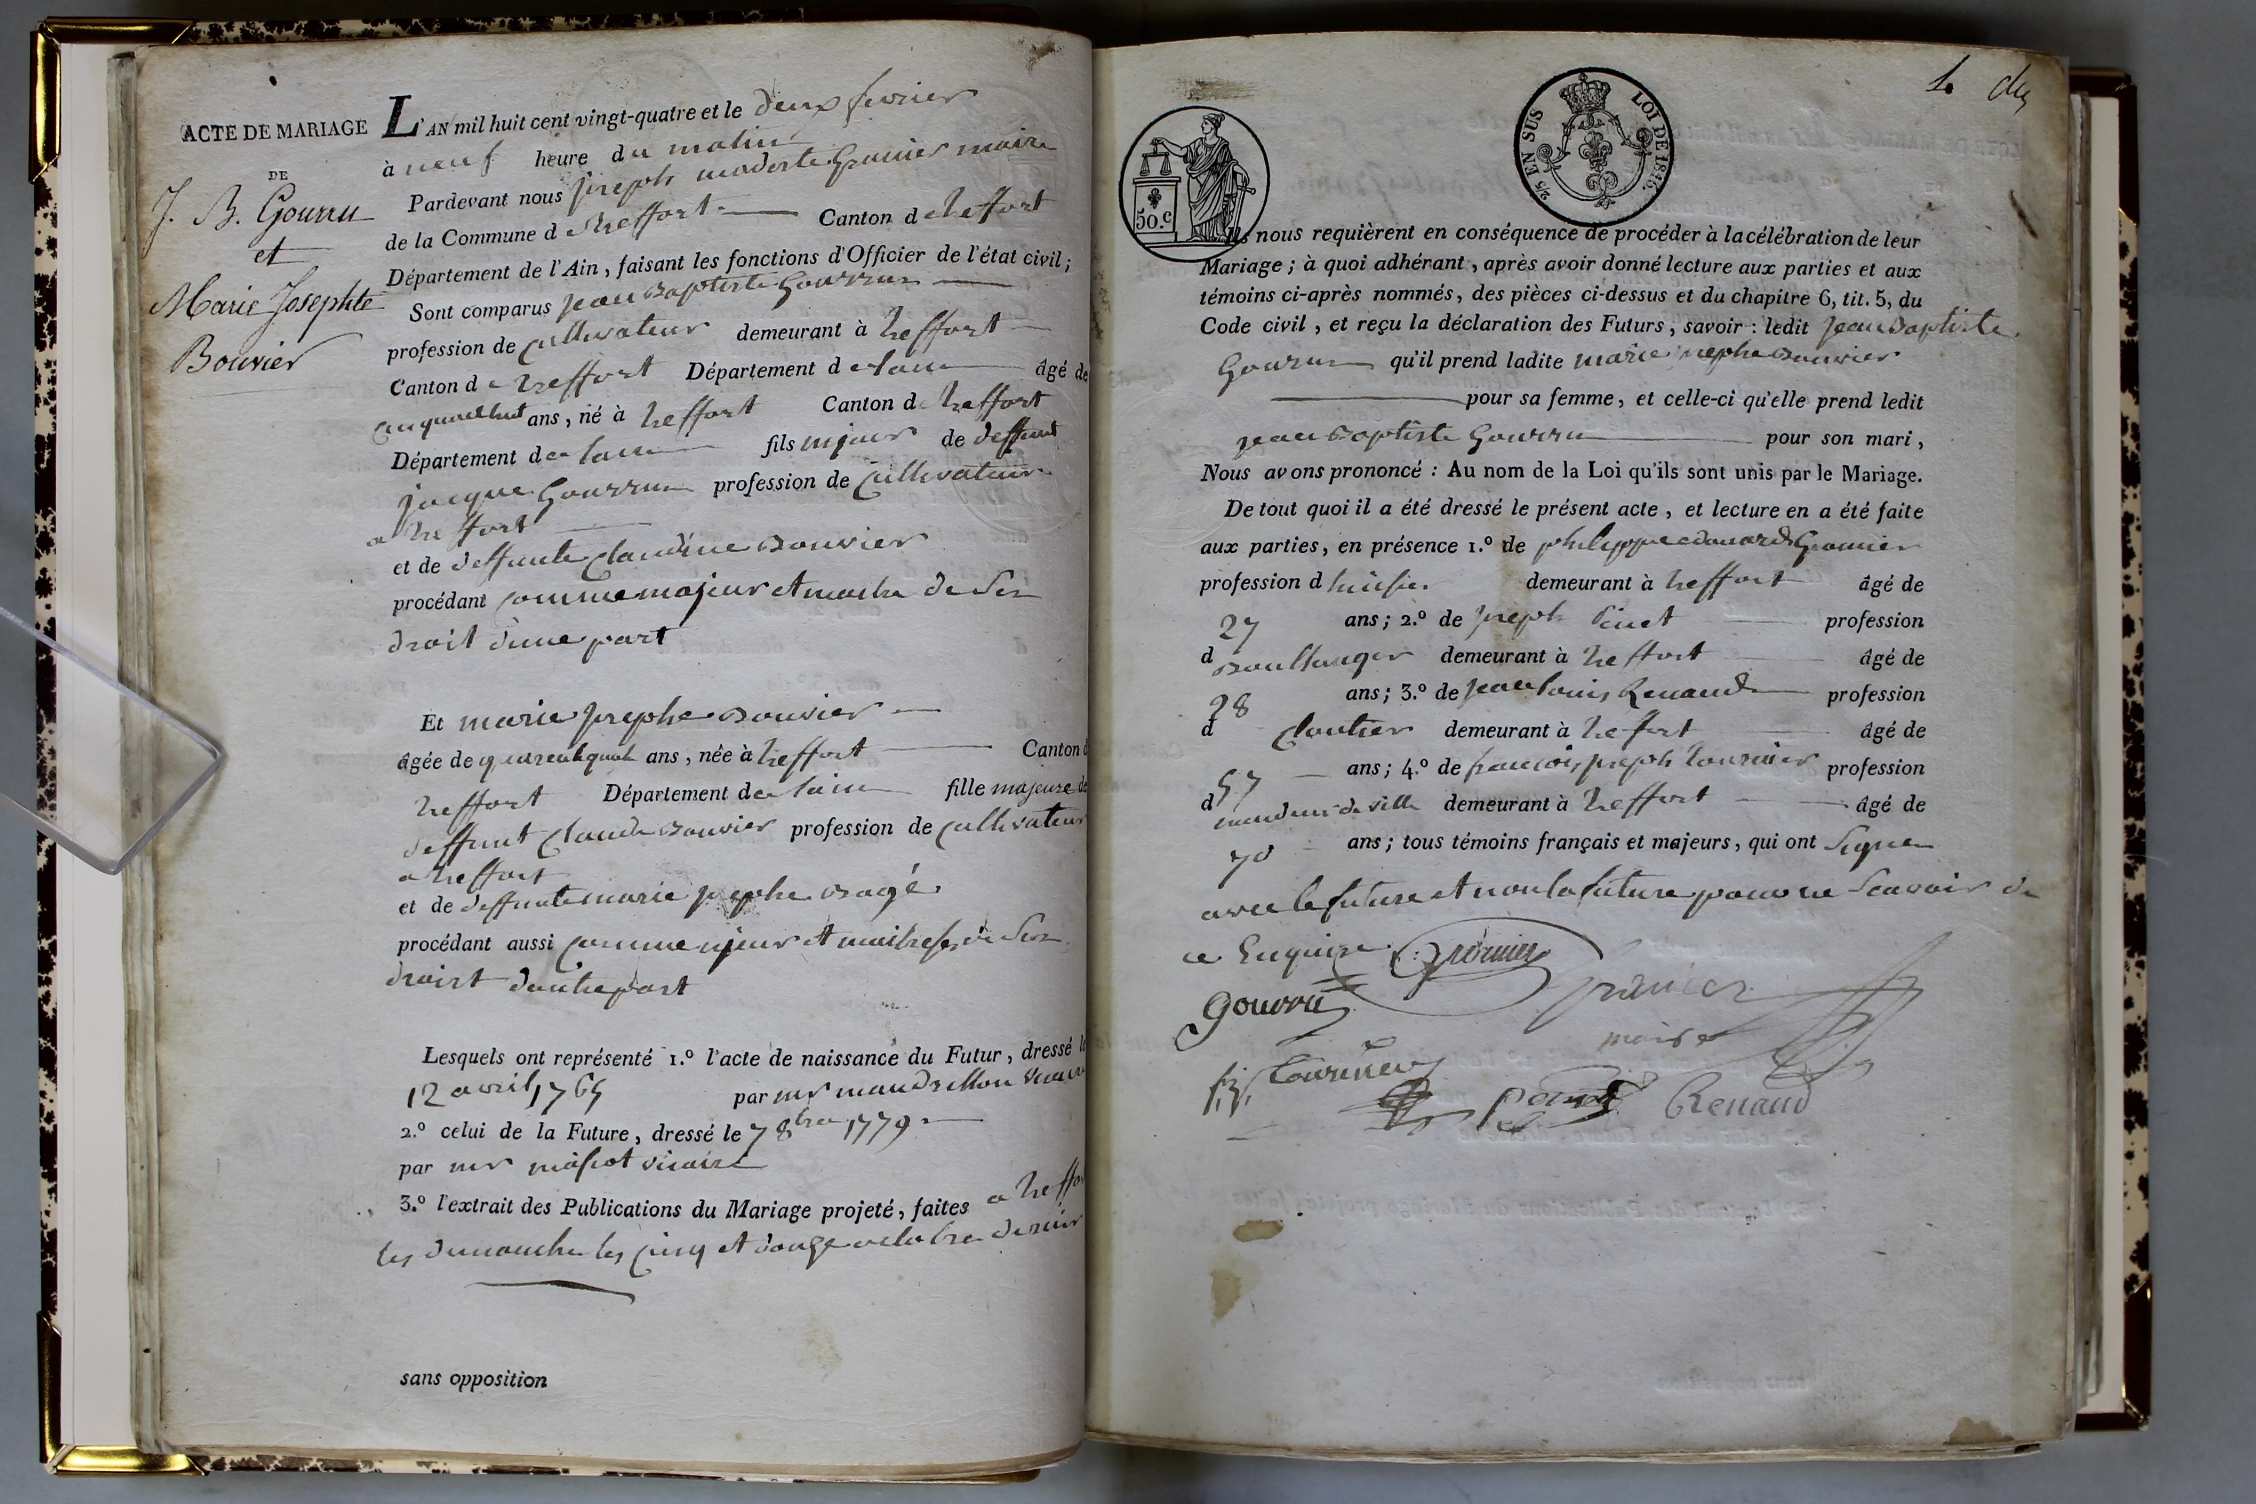 ACTE DE MARIAGE
DE
J. B. Gourru
et
Marie Josephte
Bouvier
L'AN mil huit cent vingt-quatre et le deux fevrier
à neuf heure du matin
Pardevant nous joseph modeste Gromier maire
de la Commune de treffort Canton de treffort
Département de l'Ain, faisant les fonctions d'Officier de l'état civil;
Sont comparus jean Baptiste Gourru
profession de cultivateur demeurant à treffort
Canton de treffort Département de lain âgé de
cinquante huit ans, né à treffort Canton de treffort
Département de lain fils majeur de deffunt
jacque Gourru profession de cultivateur
a treffort
et de deffunte Claudine Bouvier
procédant comme majeur et maitre de ses
droit d'une part
Et marie josephe Bouvier
âgée de quarente quatre ans, née à treffort Canton d
treffort Département de lain fille majeure de
deffunt Claude Bouvier profession de cultivateur
a treffort
et de deffunte marie josephe
procédant aussi comme majeur et maitresse de ses
droist d'autre part
Lesquels ont représenté 1.º l'acte de naissance du Futur, dressé le
12 avril 1765 par mr maudrillon vicaire
2.º celui de la Future, dressé le 7 8bre 1779
par mr vicaire
3.º l'extrait des Publications du Mariage projeté, faites a treffort
les dimanche les cinq et douze octobre dernier
sans opposition
50.c
2/5 EN SUS LOI DE 1816
Ils nous requièrent en conséquence de procéder à la célébration de leur
Mariage; à quoi adhérant, après avoir donné lecture aux parties et aux
témoins ci-après nommés, des pièces ci-dessus et du chapitre 6, tit. 5, du
Code civil, et reçu la déclaration des Futurs, savoir: ledit jean Baptiste
Gourru qu'il prend ladite marie josephe Bouvier
pour sa femme, et celle-ci qu'elle prend ledit
jean Baptiste Gourru pour son mari,
Nous avons prononcé: Au nom de la Loi qu'ils sont unis par le Mariage.
De tout quoi il a été dressé le présent acte, et lecture en a été faite
aux parties, en présence 1.º de philippe edouard Gromier
profession d huissier demeurant à treffort âgé de
27 ans; 2.º de joseph Pinet profession
d Boullanger demeurant à treffort âgé de
28 ans; 3.º de jean louis Renaud profession
d Cloutier demeurant à treffort âgé de
57 ans; 4.º de francois joseph tournier profession
d de ville demeurant à treffort âgé de
70 ans; tous témoins français et majeurs, qui ont signe
avec le future et non la future pour ne scavoir de
ce enquise Gromier
Gourru Gromier
maire
f. j. tournier Pinet Renaud